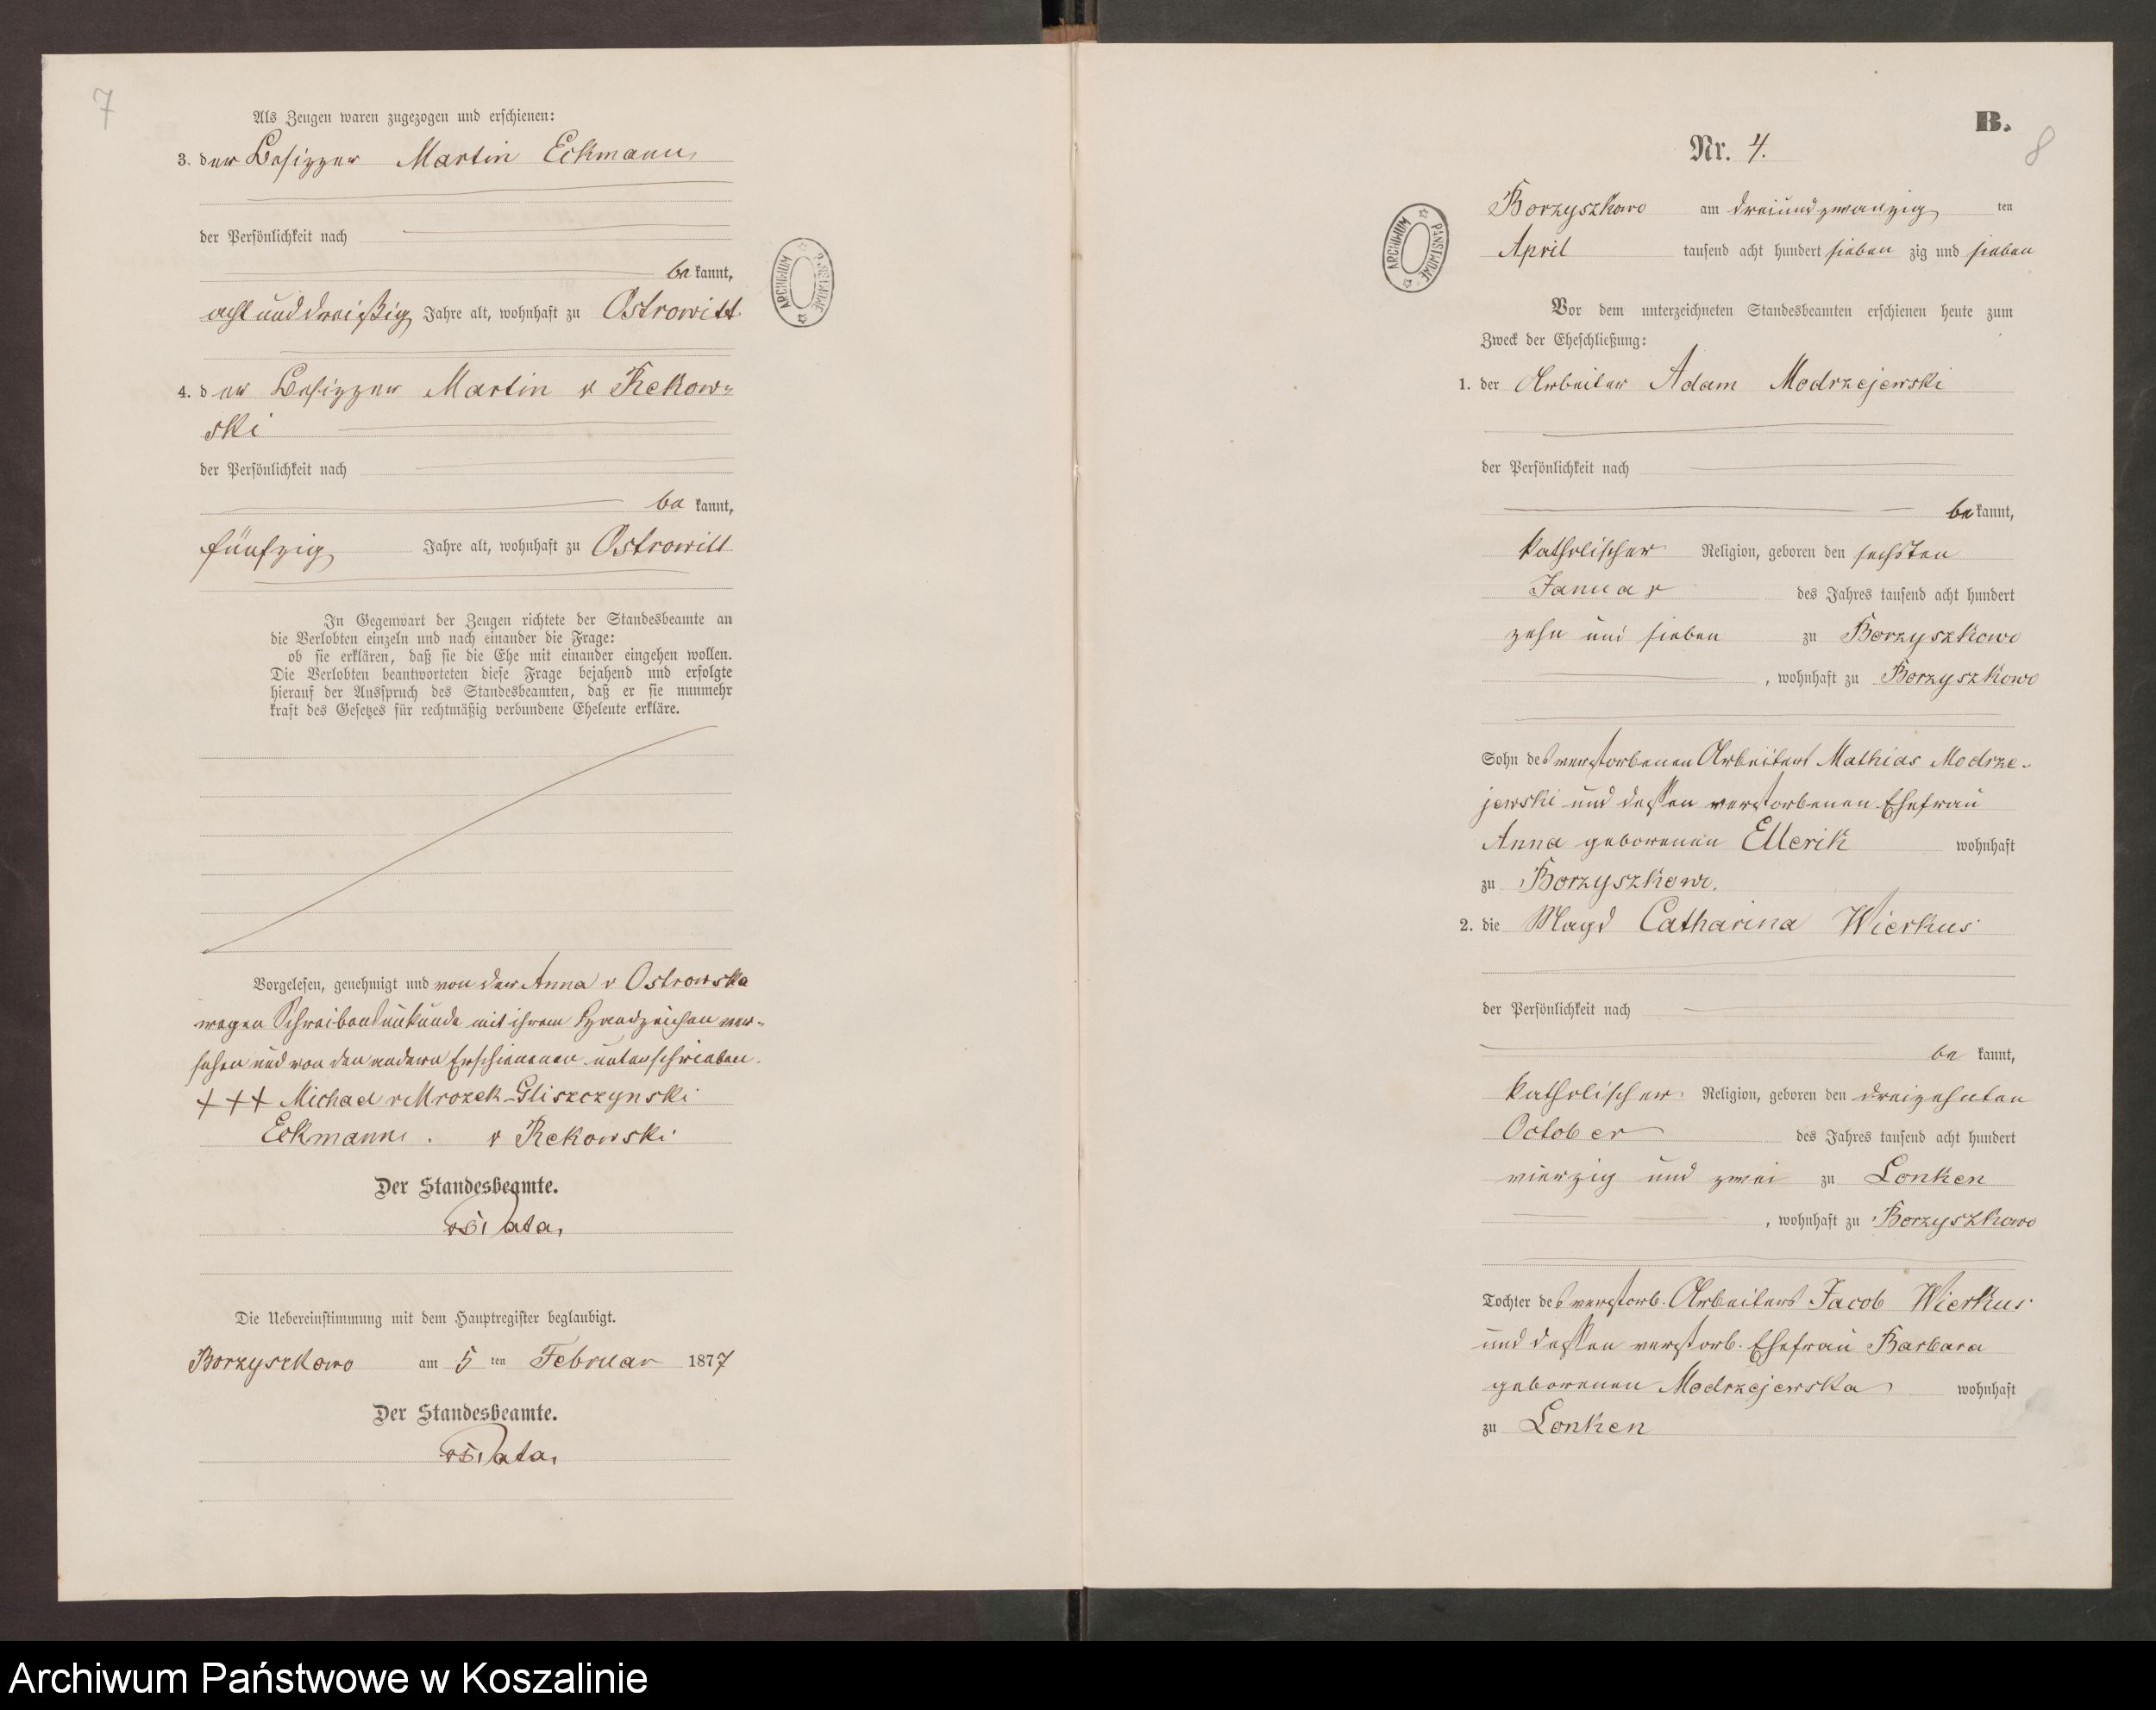 7
Als Zeugen waren zugezogen und erschienen:
3. der Besitzer Martin Eckmann
der Persönlichkeit nach
be kannt,
acht und dreißig Jahre alt, wohnhaft zu Ostrowitt
4. der Besitzer Martin v Rekow=
ski
der Persönlichkeit nach
be kannt,
fünfzig Jahre alt, wohnhaft zu Ostrowitt
In Gegenwart der Zeugen richtete der Standesbeamte an
die Verlobten einzeln und nach einander die Frage:
ob sie erklären, daß sie die Ehe mit einander eingehen wollen.
Die Verlobten beantworteten diese Frage bejahend und erfolgte
hierauf der Ausspruch des Standesbeamten, daß er sie nunmehr
kraft des Gesetzes für rechtmäßig verbundene Eheleute erkläre.
Vorgelesen, genehmigt und von der Anna v Ostrowska
wegen Schreibensunkunde mit ihrem Handzeichen ver=
sehen und von den andern Erschienenen unterschrieben.
+++ Michael v Mrozek-Gliszczynski
Eckmann. v Rekowski
Der Standesbeamte.
Die Uebereinstimmung mit dem Hauptregister beglaubigt.
Borzyszkowo am 5 ten Februar 1877
Der Standesbeamte.
B.
8
Nr. 4.
Borzyszkowo am dreiundzwanzig ten
April tausend acht hundert sieben zig und sieben
Vor dem unterzeichneten Standesbeamten erschienen heute zum
Zweck der Eheschließung:
1. der Arbeiter Adam Modrzejewski
der Persönlichkeit nach
be kannt,
katholischer Religion, geboren den sechsten
Januar des Jahres tausend acht hundert
zehn und sieben zu Borzyszkowo
, wohnhaft zu Borzyszkowo
Sohn des verstorbenen Arbeiters Mathias Modrze-
jewski und dessen verstorbenen Ehefrau
Anna geborenen Ellerik wohnhaft
zu Borzyszkowo.
2. die Magd Catharina Wierkus
der Persönlichkeit nach
be kannt,
katholischer Religion, geboren den dreizehnten
October des Jahres tausend acht hundert
vierzig und zwei zu Lonken
, wohnhaft zu Borzyszkowo
Tochter des verstorb. Arbeiters Jacob Wierkus
und dessen verstorb. Ehefrau Barbara
geborenen Modrzejewska wohnhaft
zu Lonken
ARCHIWUM PAŃSTWOWE
ARCHIWUM PAŃSTWOWE
Archiwum Państwowe w Koszalinie